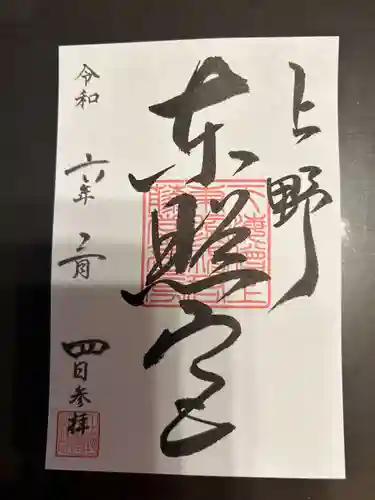 上野
東照宮
令和 六年 二月 四日参拝